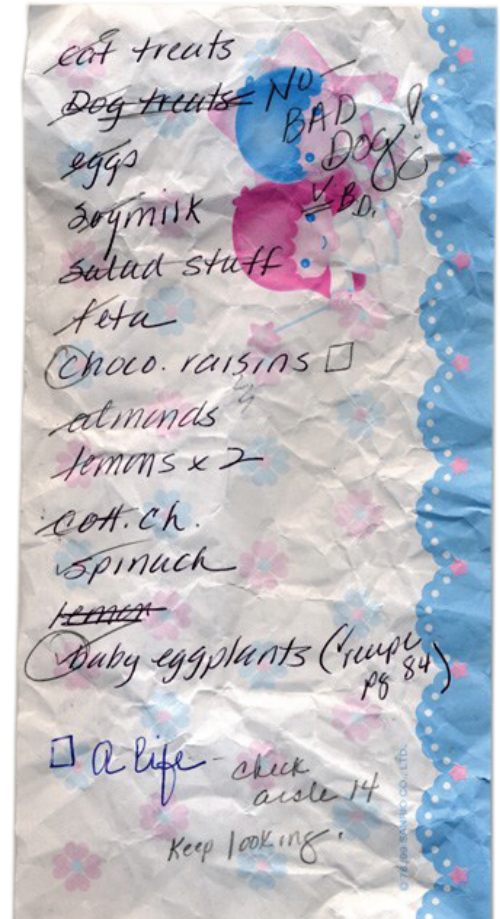 cat treats
Dog treats NO
BAD
DOG!
eggs
V.B.D.
soymilk
salad stuff
feta
choco. raisins
almonds
lemons x 2
cott. ch.
spinach
lemon
baby eggplants (recipe
pg 84)
a life - check
aisle 14
Keep looking.
SANRIO CO., LTD.